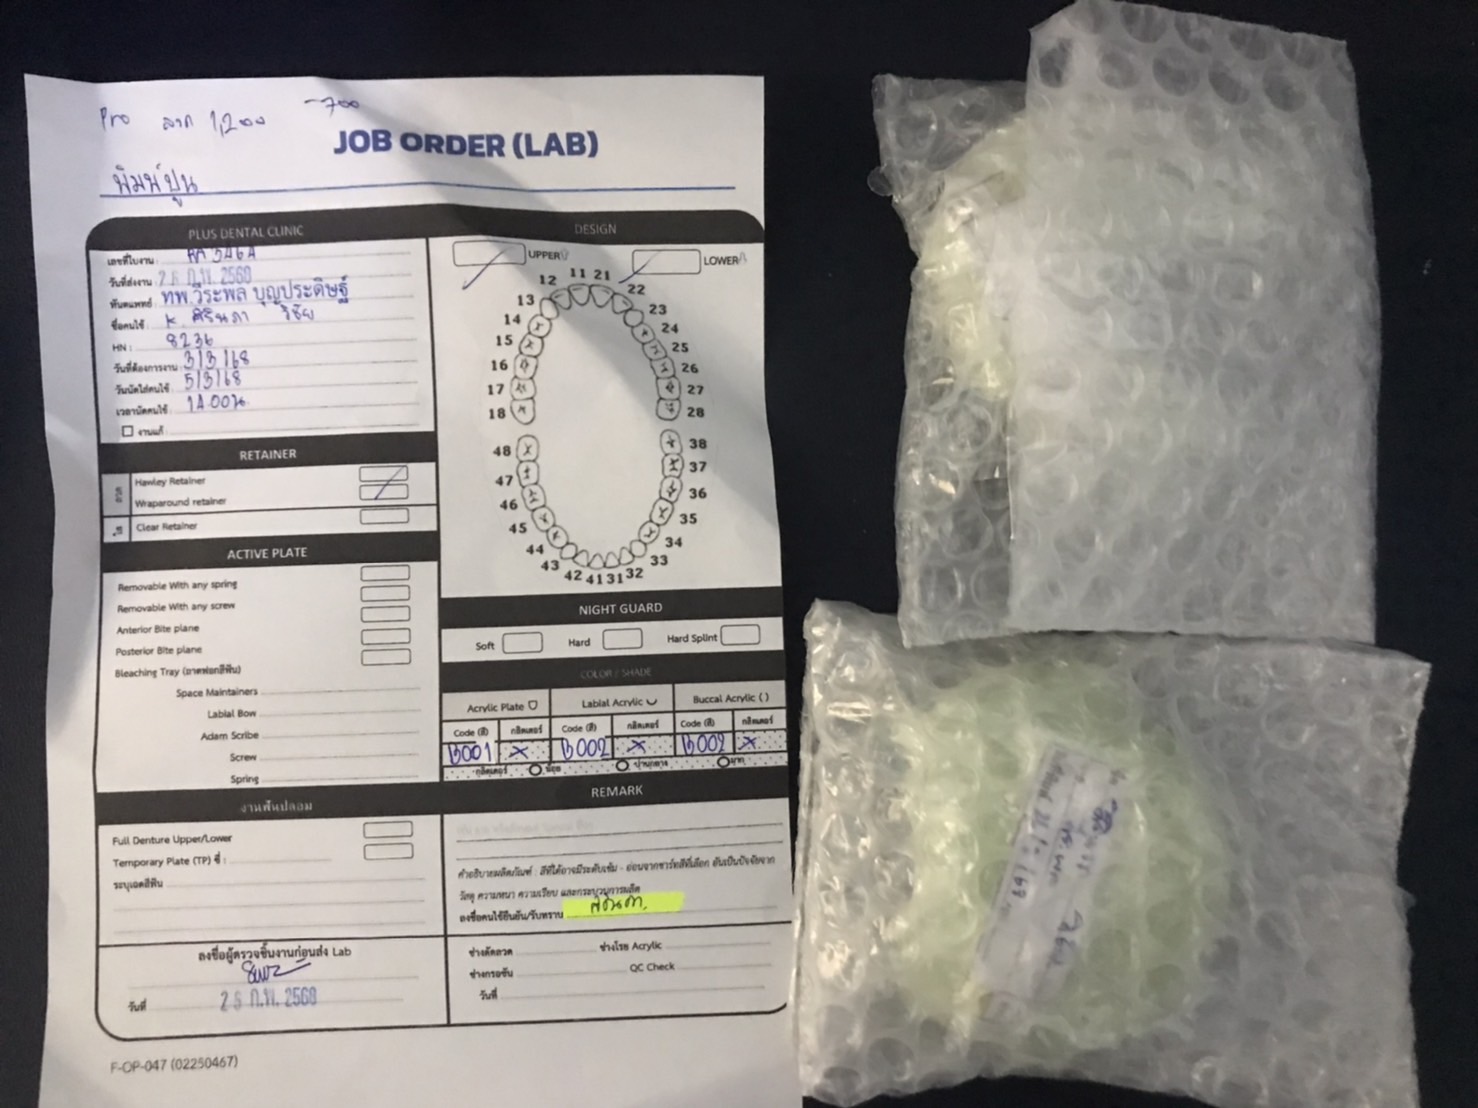 Pro ลวด 1,200 -700
JOB ORDER (LAB)
พิมพ์ปูน
PLUS DENTAL CLINIC
เลขที่ใบงาน :
วันที่ส่งงาน : 26 ก.พ. 2568
ทันตแพทย์ : ทพ.วีระพล บุญประดิษฐ์
ชื่อคนไข้ : K. ศิรินภา วิชัย
HN : 8236
วันที่ต้องการงาน : 3/3/68
วันนัดใส่คนไข้ : 5/3/68
เวลานัดคนไข้ : 14.00น.
งานแก้ :
RETAINER
ลวด
Hawley Retainer
Wraparound retainer
ใส
Clear Retainer
ACTIVE PLATE
Removable With any spring
Removable With any screw
Anterior Bite plane
Posterior Bite plane
Bleaching Tray (ถาดฟอกสีฟัน)
Space Maintainers
Labial Bow
Adam Scribe
Screw
Spring
งานฟันปลอม
Full Denture Upper/Lower
Temporary Plate (TP) ซี่ :
ระบุเฉดสีฟัน
ลงชื่อผู้ตรวจชิ้นงานก่อนส่ง Lab
วันที่ 26 ก.พ. 2568
F-OP-047 (02250467)
DESIGN
UPPER LOWER
11 21
12 22
13 23
14 24
15 25
16 26
17 27
18 28
48 38
47 37
46 36
45 35
44 34
43 33
42 41 31 32
NIGHT GUARD
Soft Hard Hard Splint
COLOR / SHADE
Acrylic Plate Labial Acrylic Buccal Acrylic ( )
Code (สี) กลิตเตอร์ Code (สี) กลิตเตอร์ Code (สี) กลิตเตอร์
B001 x B002 x B002 x
กลิตเตอร์ น้อย ปานกลาง มาก
REMARK
คำอธิบายผลิตภัณฑ์ : สีที่ได้อาจมีระดับเข้ม - อ่อนจากชาร์ทสีที่เลือก อันเป็นปัจจัยจาก
วัสดุ ความหนา ความเรียบ และกระบวนการผลิต
ลงชื่อคนไข้ยืนยัน/รับทราบ
ช่างดัดลวด ช่างโรย Acrylic
ช่างกรอขัด QC Check
วันที่